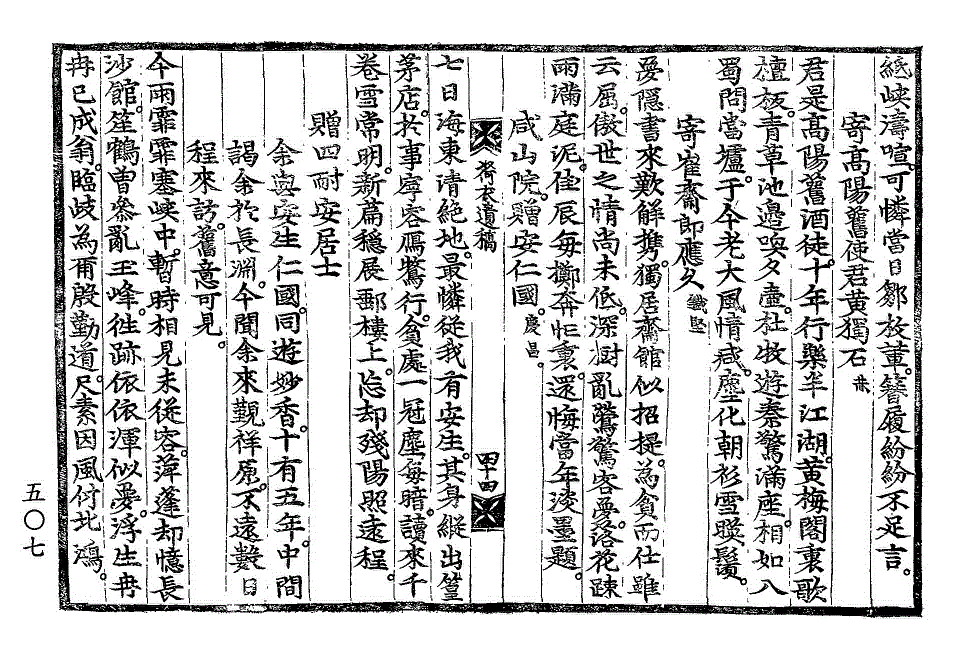 繞峽濤喧可憐當日鄒枚輩簪履紛紛不足言
寄高陽舊使君黃獨石
君是高陽舊酒徒十年行樂半江湖黃梅閣裏歌
檀板青草池邊喚夕壺杜牧遊秦驚滿座相如入
蜀問當壚于今老大風情減塵化朝衫雪照鬚
寄崔齋郎應久
憂隱書來歎解携獨居齋館似招提為貧而仕雖
云屈傲世之情尚未低深樹亂鶯驚客夢落花踈
雨滿庭泥佳辰每擲奔忙裏還悔當年淡墨題
咸山院贈安仁國慶昌
四十四
七日海東清絶地最憐從我有安生其身縱出篁
茅店於事寧容鴈鶩行貧處一冠塵每暗讀來千
卷雪常明新篇穩展郵樓上忘却殘陽照遠程
贈四耐安居士
余與安生仁國同遊妙香十有五年中間
謁余於長淵今聞余來覲祥原不遠數日
程來訪舊意可見
今雨霏霏塞峽中暫時相見未從容萍蓬却憶長
沙館笙鶴曾叅亂玉峰徃跡依依渾似夢浮生冉
冉已成翁臨歧為爾殷勤道尺素因風付北鴻
五〇七